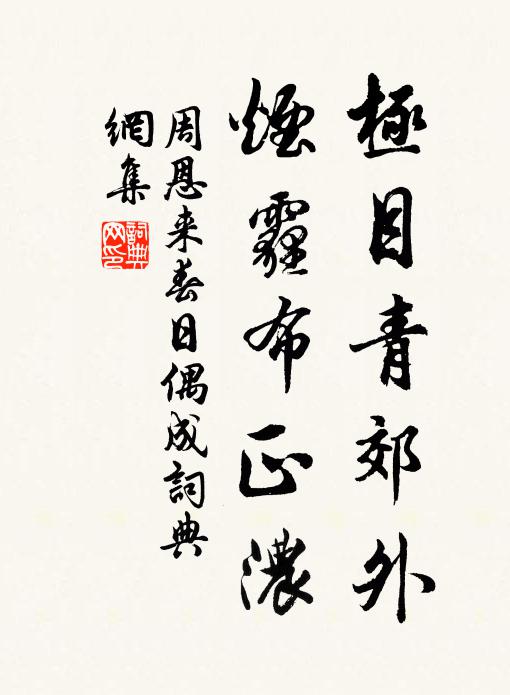 極目青郊外
煙霾布正濃
周恩来春日偶成詞典
網集
詞典
网印